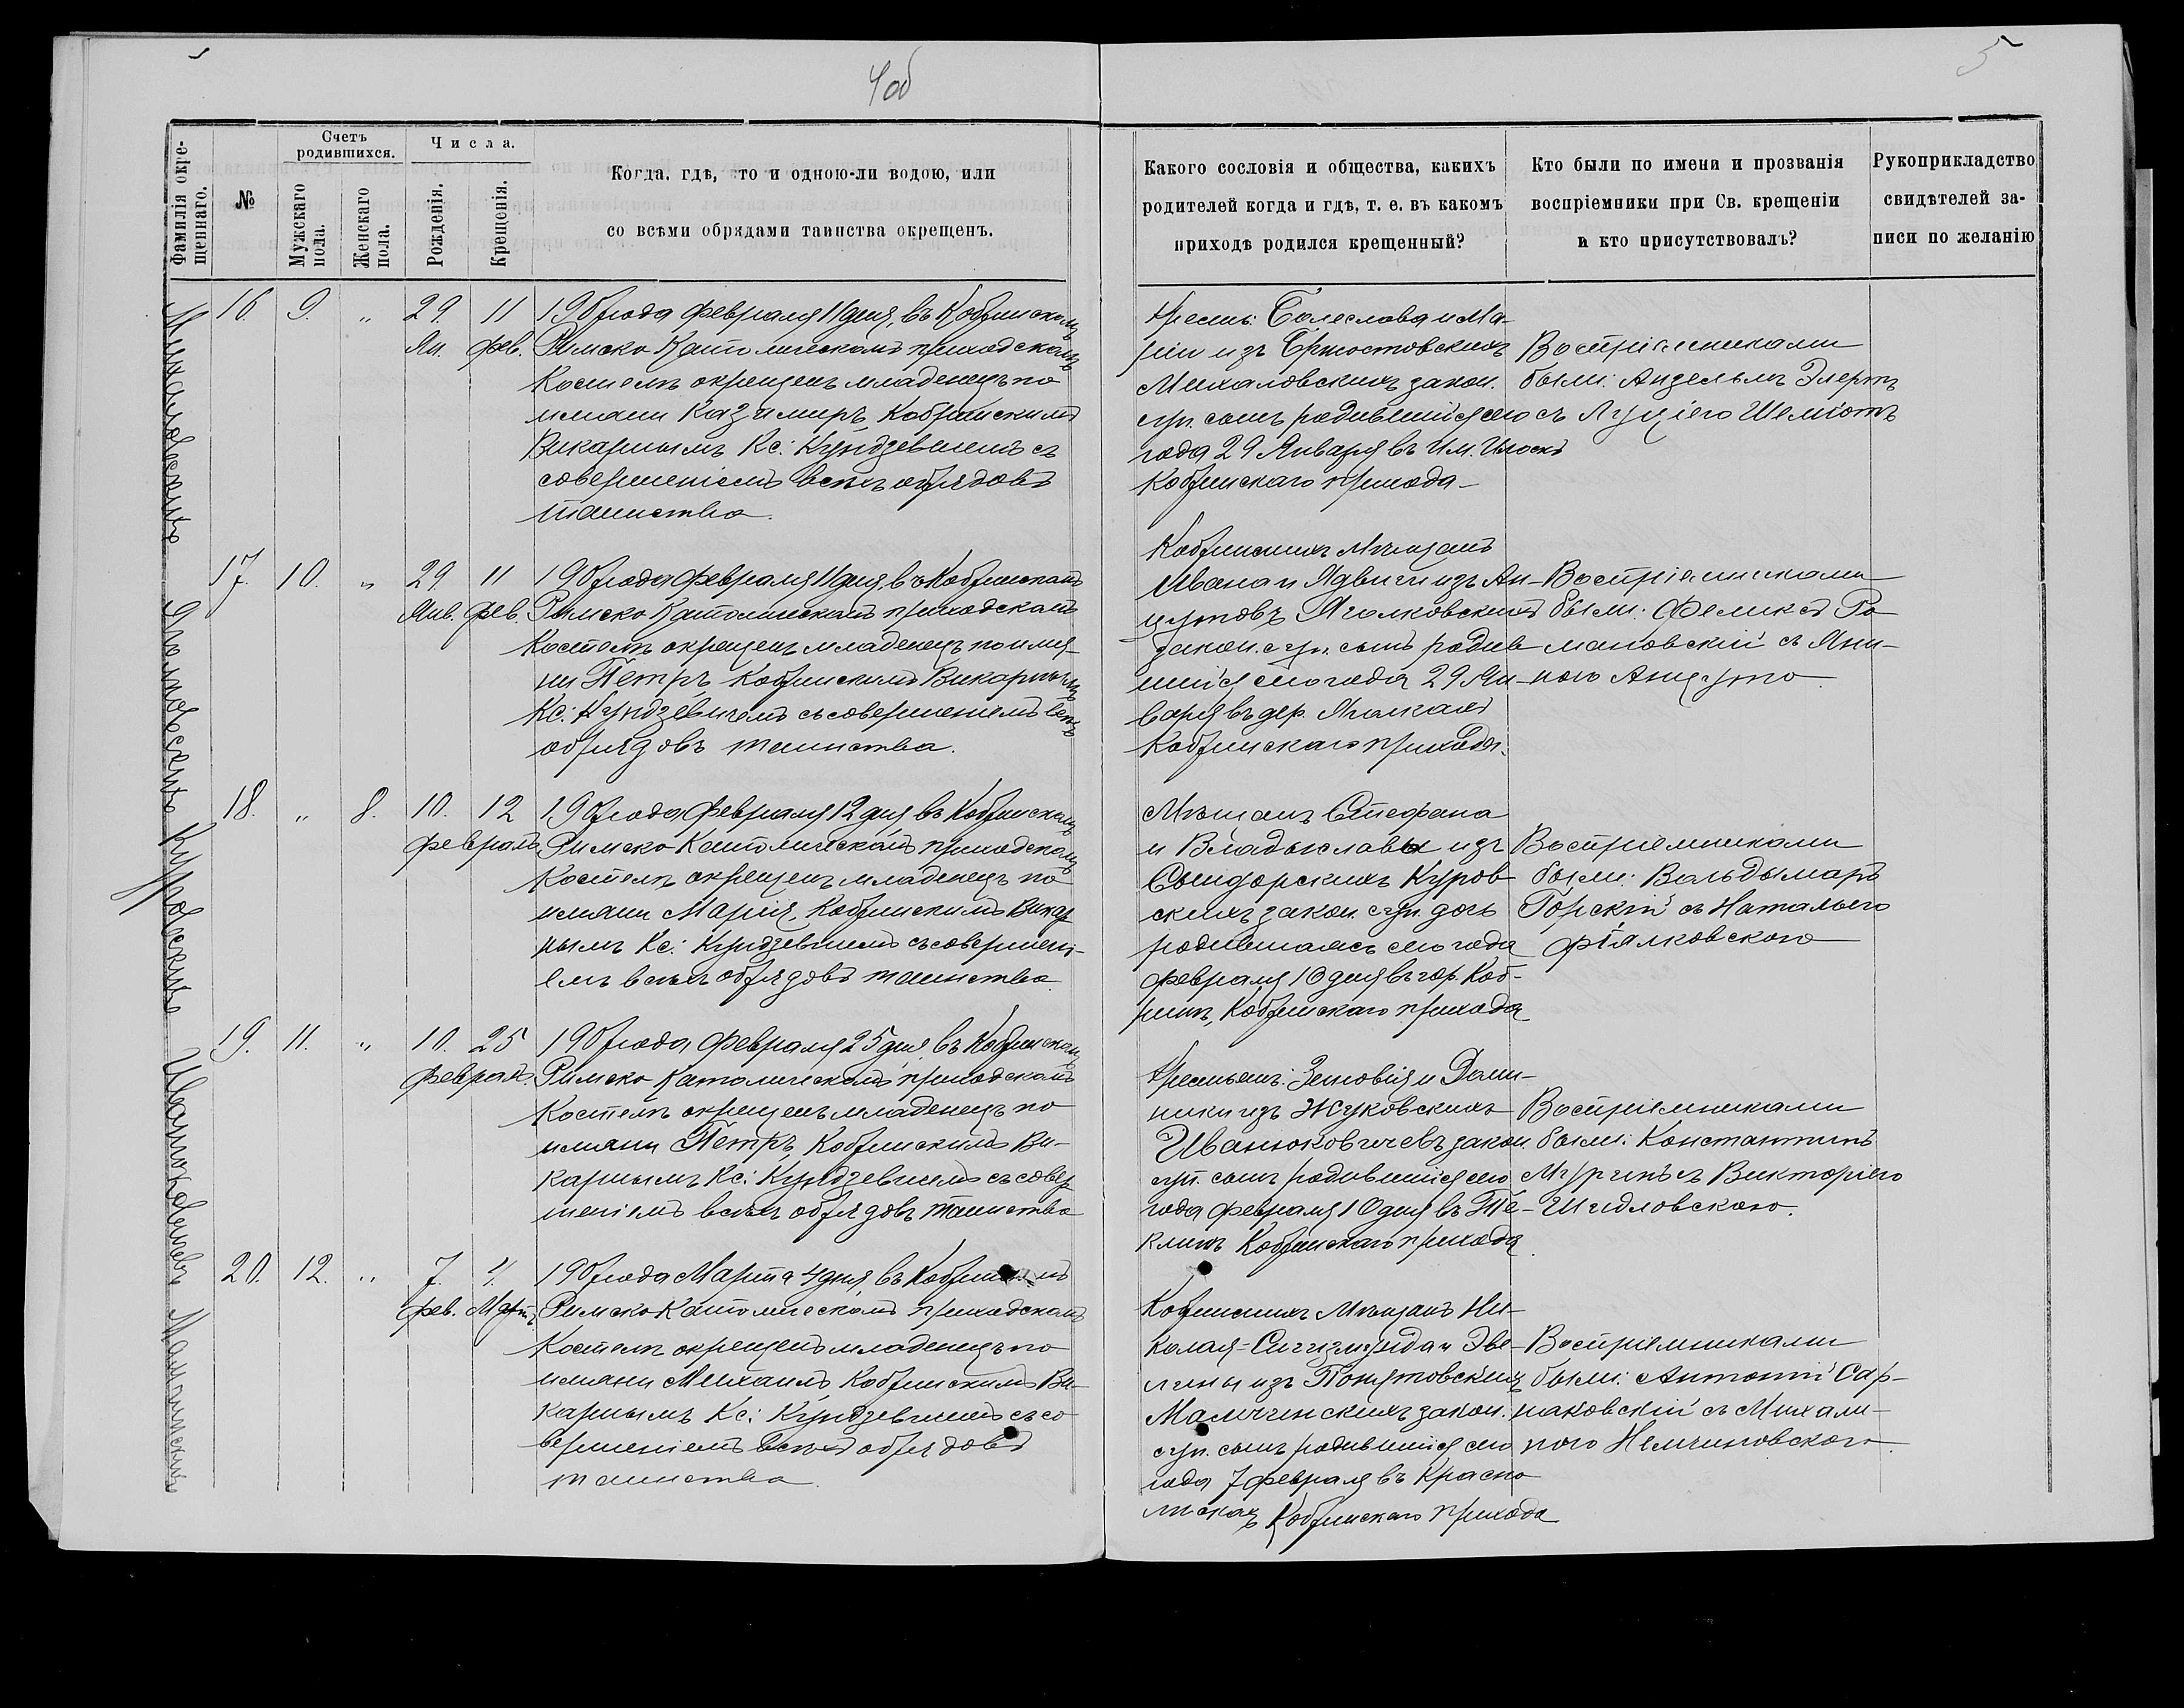 4об
5
Фамилія окре-
щеннаго.
№
Счетъ
родившихся.
Мужскаго
пола.
Женскаго
пола.
Числа.
Рожденія.
Крещенія.
Когда, гдѣ, кто и одною-ли водою, или
со всѣми обрядами таинства окрещенъ.
Какого сословія и общества, какихъ
родителей когда и гдѣ, т. е. въ какомъ
приходѣ родился крещенный?
Кто были по имена и прозванія
воспріемники при Св. крещеніи
и кто присутствовалъ?
Рукоприкладство
свидѣтелей за-
писи по желанію
Михаловскій
16. 9. „ 29 11
Ян. фев.
1907 года Февраля 11 дня, въ Кобринскомъ
Римско Католическомъ приходскомъ
Костелѣ окрещенъ младенецъ по
имяни Казимиръ, Кобринскимъ
Викарнымъ Кс: Кундзевичемъ съ
совершеніемъ всѣхъ обрядовъ
таинства.
Крестьи: Болеслава и Ма-
ріи изъ Бржостовскихъ
Михаловскихъ закон.
суп. сынъ родившійся сего
года 29 Января въ Им.
Кобринскаго прихода
Воспріемниками
были: Анзельмъ Элертъ
съ Луціею Шеміотъ
Ягелковскій
17. 10. „ 29 11
Янв. фев.
1907 года Февраля 11 дня, въ Кобринскомъ
Римско Католическомъ приходскомъ
Костелѣ окрещенъ младенецъ по имя-
ни Петръ, Кобринскимъ Викарнымъ
Кс: Кундзевичемъ съ совершеніемъ всѣхъ
обрядовъ таинства.
Кобринскихъ Мѣщанъ
Ивана и Ядвиги изъ Ан-
цутовъ Ягелковскихъ
закон. суп. сынъ родив
шійся сего года 29 Ян-
варя въ дер.
Кобринскаго прихода.
Воспріемниками
были: Феликсъ Ро
мановскій съ Яни-
ною Анцуто
Куровская
18. „ 8. 10. 12
февраля
1907 года Февраля 12 дня въ Кобринскомъ
Римско-Католическомъ приходскомъ
Костелѣ окрещенъ младенецъ по
имяни Марія, Кобринскимъ Викар
нымъ Кс: Кундзевичемъ съ совершені-
емъ всѣхъ обрядовъ таинства
Мѣщанъ Стефана
и Владыславы изъ
Сындорскихъ Куров
скихъ закон. суп. дочь
родившаясь сего года
февраля 10 дня въ гор. Коб-
ринѣ, Кобринскаго прихода
Воспріемниками
были: Вольдымаръ
Горскій съ Натальею
Фіялковскою
Иванюковичъ
19. 11. „ 10. 25
февраля.
1907 года Февраля 25 дня, въ Кобринскомъ
Римско Католическомъ приходскомъ
Костелѣ окрещенъ младенецъ по
имяни Петръ, Кобринскимъ Ви-
карнымъ Кс: Кундзевичемъ съ совер
шеніемъ всѣхъ обрядовъ таинства
Крестьянъ: Зеновія и Доми-
ники изъ Жуковскихъ
Иванюковичевъ закон.
суп. сынъ родившійся сего
года Февраля 10 дня въ Те-
клинѣ Кобринскаго прихода
Воспріемниками
были: Константинъ
Муринъ съ Викторіею
Шидловскою.
Малчинскій
20. 12. „ 7. 4.
фев. Мартъ
1907 года Марта 4 дня, въ Кобринскомъ
Римско-Католическомъ приходскомъ
Костелѣ окрещенъ младенецъ по
имяни Михаилъ, Кобринскимъ Ви-
карнымъ Кс: Кундзевичемъ съ со
вершеніемъ всѣхъ обрядовъ
таинства.
Кобринскихъ Мѣщанъ Ни-
колая-Сигизмунда и Эве-
лины изъ Понутовскихъ
Малчинскихъ закон.
суп. сынъ родившійся сего
года 7 февраля въ Красно
лискахъ Кобринскаго прихода
Воспріемниками
были: Антоній Сар-
наковскій съ Михали-
ною Немчиновскою.